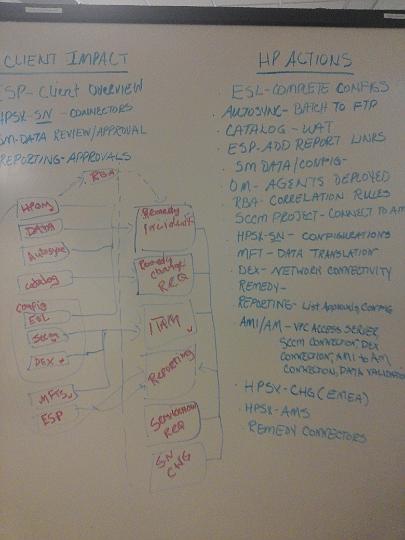 CLIENT IMPACT
ESP-Client Overview
HPSX-SN-CONNECTORS
SM-DATA REVIEW/APPROVAL
REPORTING-APPROVALS
RBA
HPOM
DATA
Autosync
catalog
config
ESL
Sccm
DEX
MFTS
ESP
Remedy Incident
Remedy change RRQ
ITAM
REPORTING
ServiceNow RRQ
SN CHG
HP ACTIONS
ESL-COMPLETE CONFIGS
AUTOSYNC-BATCH TO FTP
CATALOG-UAT
ESP-ADD REPORT LINKS
SM DATA/CONFIG-
OM-AGENTS DEPLOYED
RBA-CORRELATION RULES
SCCM PROJECT-CONNECT TO AM
HPSX-SN-CONFIGURATIONS
MFT-DATA TRANSLATION
DEX-NETWORK CONNECTIVITY
REMEDY-
REPORTING-List Approving Config
AMI/AM-VPC ACCESS SERVER
SCCM CONNECTION, DEX
CONNECTION, AMI to AM
CONNECTION, DATA VALIDATION
HPSX-CHG(EMEA)
HPSX-AMS
REMEDY CONNECTORS